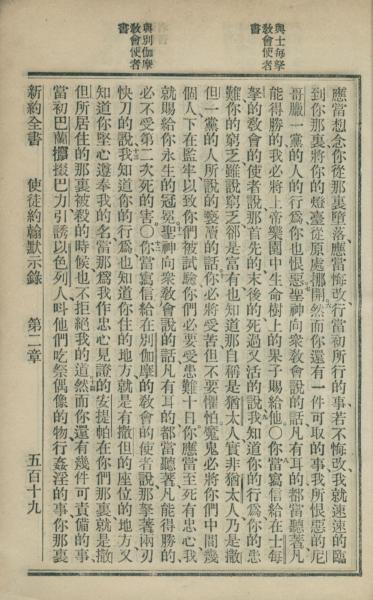 與士每拏
教會使者
書
與別伽摩
教會使者
書
應當想念你從那裏墮落應當悔改行當初所行的事若不悔改我就速速的臨
到你那裏將你的燈臺從原處挪開然而你還有一件可取的事我所恨惡的尼
哥臘一黨的人的行爲你也恨惡聖神向衆教會說的話凡有耳的都當聽著凡
能得勝的我必將上帝樂園中生命樹上的果子賜給他〇你當寫信給在士每
拏的教會的使者說那首先的末後的死過又活的說我知道你的行爲你的患
難你的窮乏雖說窮乏卻是富有也知道那自稱是猶太人實非猶太人乃是撒
但一黨的人所說的褻瀆的話你必將受苦但不要懼怕魔鬼必將你們中間幾
個人下在監牢以致你們被試驗你們必要受患難十日你應當至死有忠心我
就賜給你永生的冠冕聖神向衆教會說的話凡有耳的都當聽著凡能得勝的
必不受第二次死的害〇你當寫信給在別伽摩的教會的使者說那拏著兩刃
快刀的說我知道你的行爲也知道你住的地方就是有撒但的座位的地方又
知道你堅心遵奉我的名當那爲我作忠心見證的安提帕在你們那裏就是撒
但所居住的那裏被殺的時候也不拒絕我的道然而你還有幾件可責備的事
當初巴蘭攛掇巴力引誘以色列人呌他們吃祭偶像的物行姦淫的事你那裏
新約全書 使徒約翰默示錄 第二章 五百十九